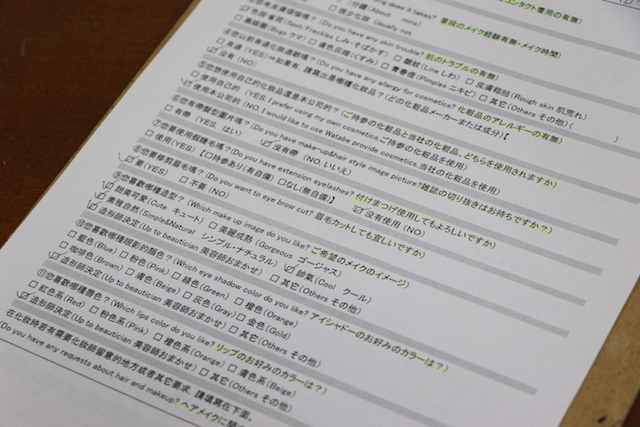 コンタクト着用の有無)
分鐘(About mins) 普段のメイク経験有無・メイク時間)
Usually not
(Do you have any skin trouble? 肌のトラブルの有無)
(Spot/Freckles しみ・そばかす) □ 皺紋(Line しわ) □ 皮膚粗糙(Rough skin 肌荒れ)
□ 黑眼圈(Bags クマ) □ 膚色灰暗(くすみ) □ 青春痘(Pimples ニキビ) □ 其它(Others その他)( )
(Do you have any allergy for cosmetics? 化粧品のアレルギーの有無)
□ 有過(YES)⇒如果有,請寫出是哪種化粧品?(どの化粧メーカーまたは成分)【
☑ 沒有(NO)
⑤您想使用自己的化粧品還是本公司的?(ご持参の化粧品と当社の化粧品、どちらを使用されますか)
□ 使用自己的(YES, I prefer using my own cosmetics.ご持参の化粧品を使用)
☑ 使用本公司的(NO, I would like to use Watabe provide cosmetics.当社の化粧品を使用)
⑥您有帶髮型圖片嗎?(Do you have make-up&hair style image picture?雑誌の切り抜きはお持ちですか?)
□ 有帶(YES、はい) ☑ 沒有帶(NO、いいえ)
⑦您要使用假睫毛嗎?(Do you have extension eyelashes? 付けまつげ使用してもよろしいですか)
□ 使用(YES)【□持參あり(有自備) □なし(無自備)】 ☑ 沒有使用(NO)
⑧您要修剪眉毛嗎?(Do you want to eye brow cut? 眉毛カットしても宜しいですか)
☑ 要(YES) □ 不要(NO)
⑨您喜歡哪種造型?(Which make up image do you like? ご希望のメイクのイメージ)
☑ 甜美可愛(Cute キュート) □ 美麗成熟(Gorgeous ゴージャス)
☑ 素雅自然(Simple&Natural シンプル・ナチュラル) ☑ 帥氣(Cool クール)
□ 造形師決定(Up to beautician 美容師おまかせ) □ 其它(Others その他)
⑩您喜歡哪種眼影的顏色?(Which eye shadow color do you like? アイシャドーのお好みのカラーは?)
□ 藍色(Blue) □ 粉色(Pink) □ 綠色(Green) □ 橙色(Orange)
□ 咖啡色(Brown) □ 膚色(Beige) □ 灰色(Gray) □ 金色(Gold)
☑ 造形師決定(Up to beautician 美容師おまかせ) □ 其它(Others その他)
⑪您喜歡哪種唇色?(Which lips color do you like? リップのお好みのカラーは?)
□ 紅色系(Red) □ 粉色系(Pink) □ 橙色系(Orange) □ 膚色系(Beige)
☑ 造形師決定(Up to beautician 美容師おまかせ) □ 其它(Others その他)
在化妝時若有需要化妝師留意的地方或者其它要求,請填寫在下面。
(Do you have any requests about hair and makeup? ヘアメイクに関